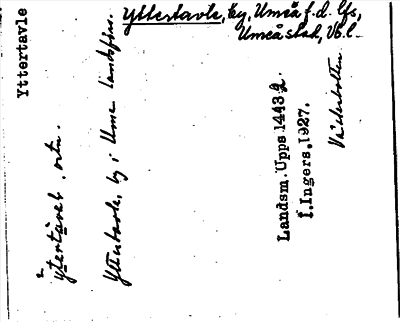 Yttertavle, by, Umeå f.d. lfs,
Umeå stad, Vb.l.
Yttertavle
ýtertável, ortn.
Yttertavle, by i Umeå landsförs.
Landsm. Upps 1443:2.
I. Ingers. 1927.
Västerbotten